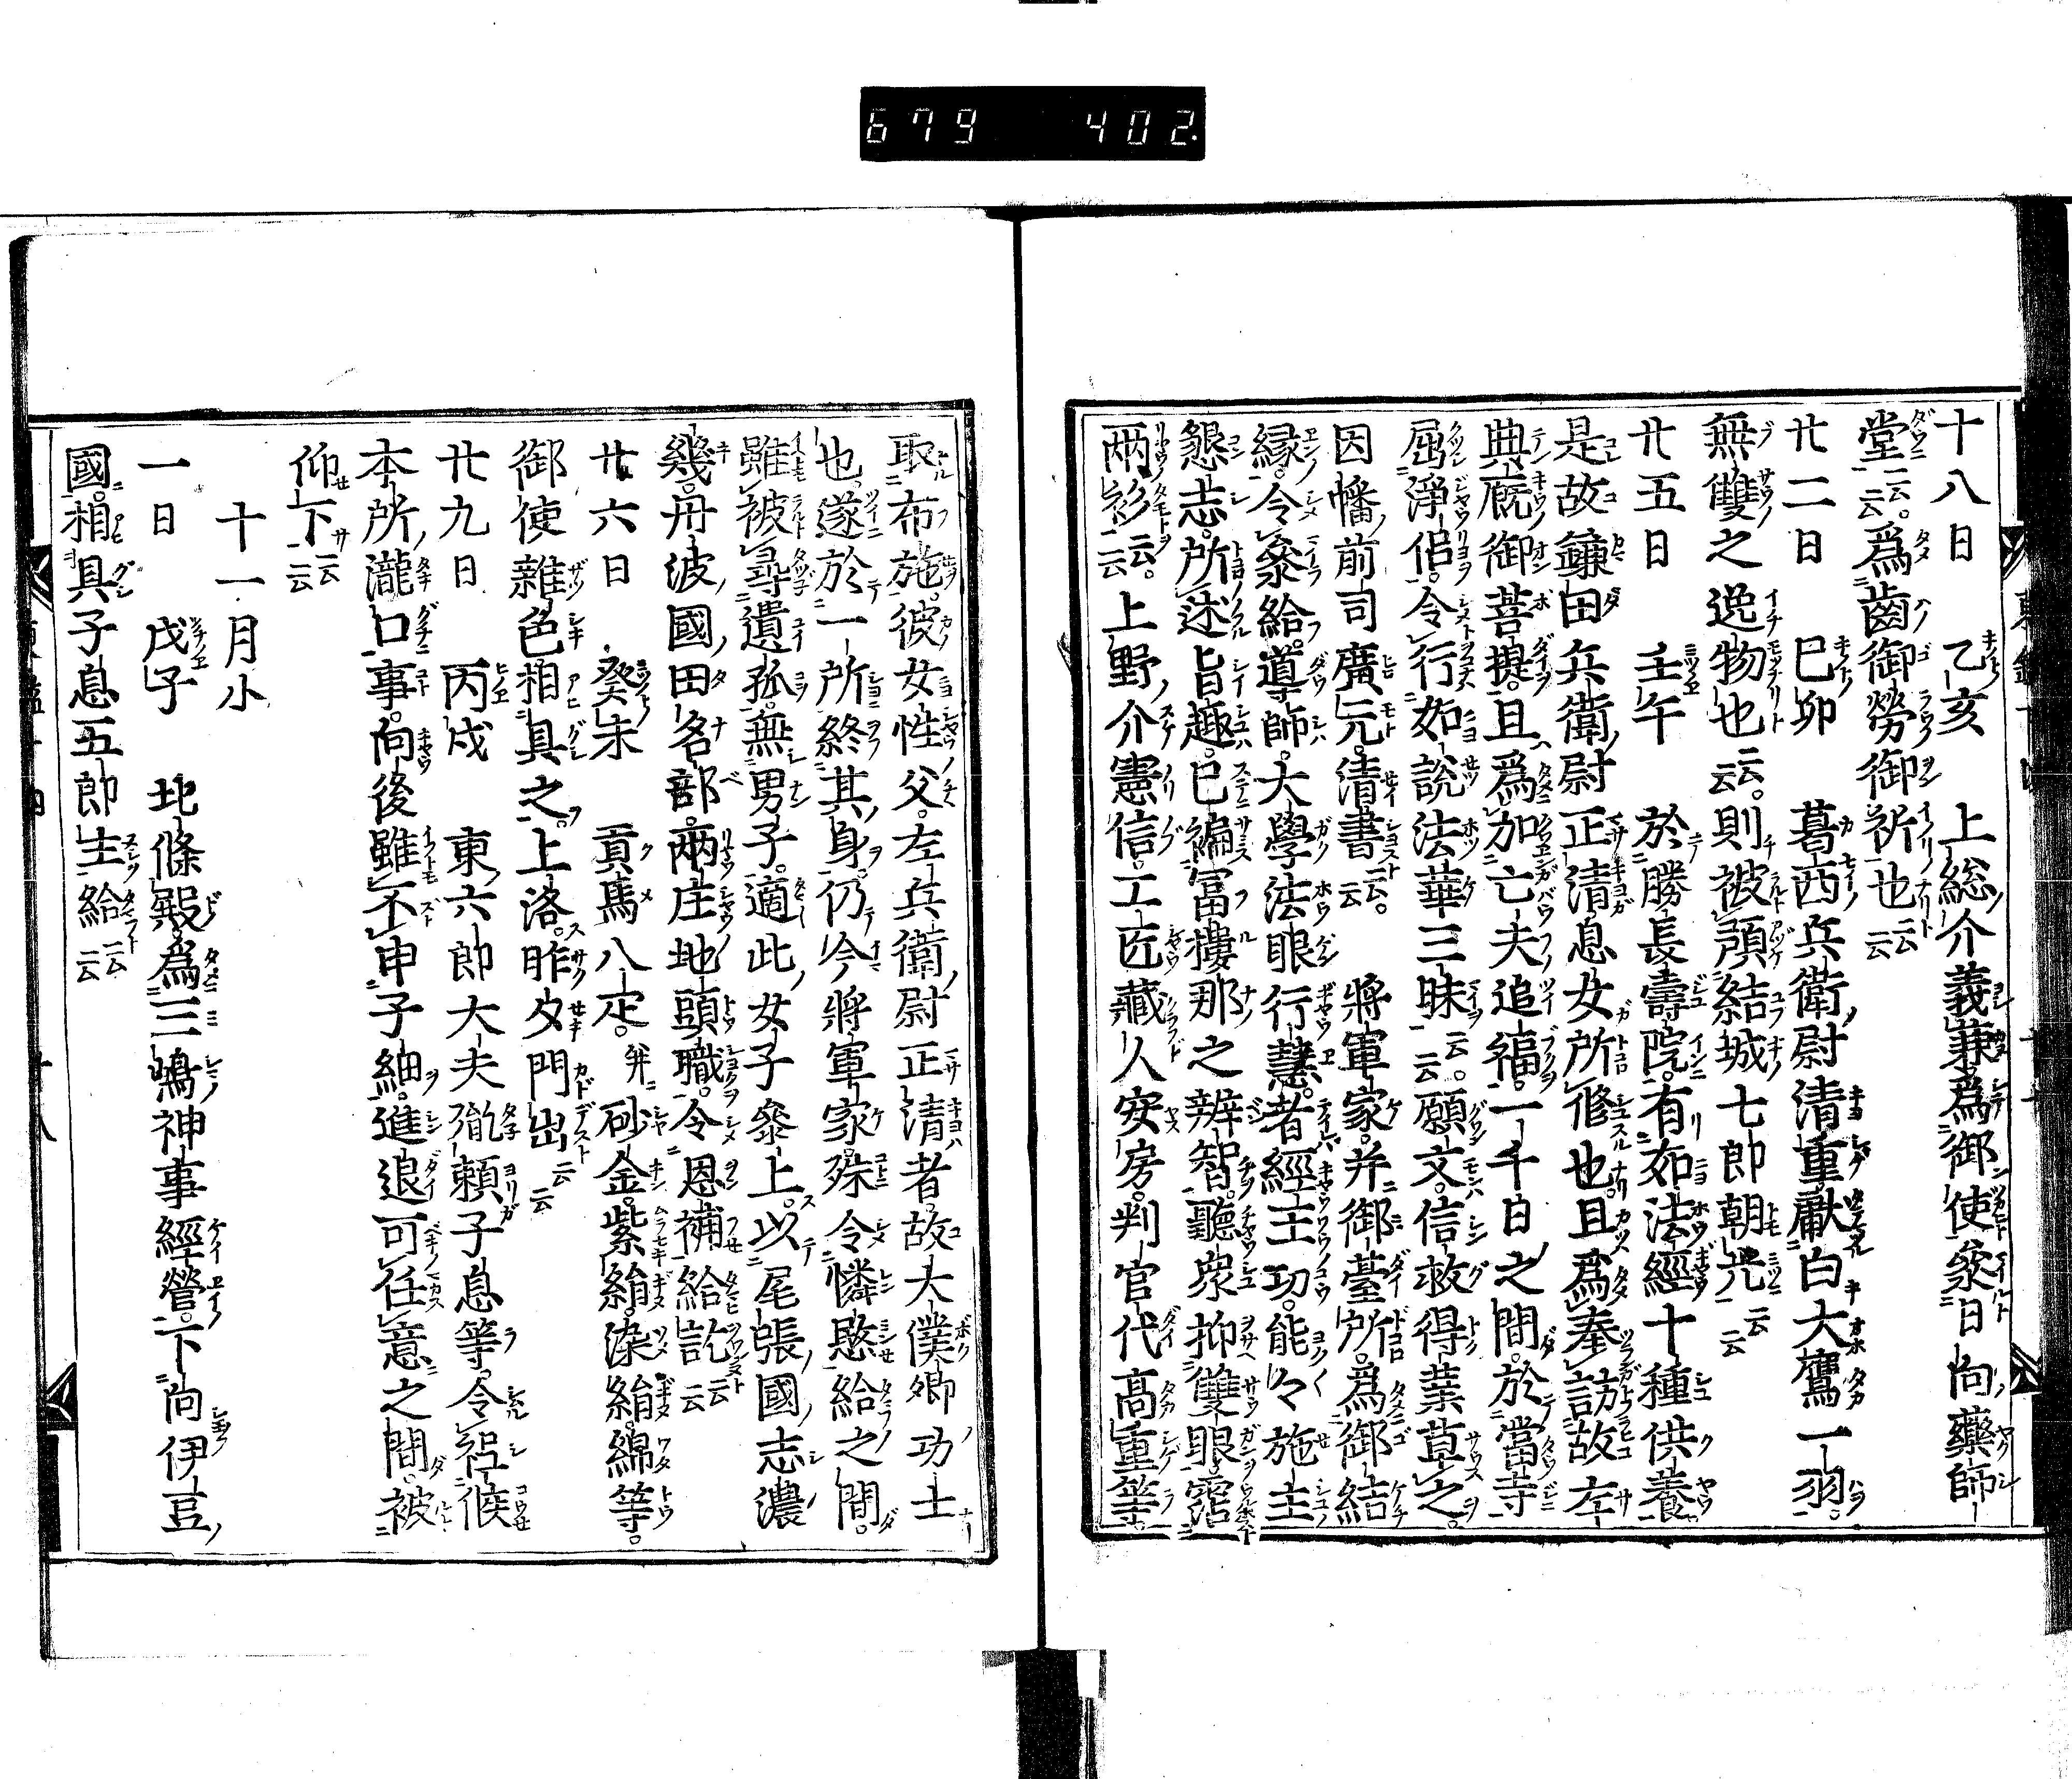 679 402.
十八日 乙亥 上総介義兼為御使參日向藥師
堂云云。為齒御勞御祈也云云
廿二日 巳卯 葛西兵衛尉清重獻白大鷹一羽。
無雙之逸物也云云。則被預結城七郎朝光云云
廿五日 壬午 於勝長壽院。有如法經十種供養
是故鎌田兵衛尉正清息女所修也。且為奉訪故左
典厩御菩提。且為加亡夫追福。一千日之間。於當寺
屈淨侶。令行如說法華三昧云云。願文。信救得業草之。
因幡前司廣元。清書云云。 將軍家。并御臺所。為御結
緣。令參給。導師。大學法眼行慧。者經王功。能々施主
懇志。所述旨趣。已褊富樓那之辨智。聽衆抑雙眼。霑
兩衫云云。上野介憲信。工匠藏人安房。判官代高重等。
取布施。彼女性父。左兵衛尉正清者。故大僕卿功士
也。遂於一所終其身。仍今將軍家。殊令憐愍給之間。
雖被尋遺孤。無男子。適此女子參上。以尾張國志濃
幾。丹波國田名部。兩庄地頭職。令恩補給訖云云
廿六日 癸未 貢馬八疋。并砂金。紫絹。染絹。綿等。
御使雜色相具之。上洛。昨夕門出云云
廿九日 丙戌 東六郎大夫胤頼子息等。令祗候
本所瀧口事。向後雖不申子細。進退可任意之間。被
仰下云云
十一月小
一日 戊子 北條殿為三嶋神事經營。下向伊豆
國。相具子息五郎主給云云
十八